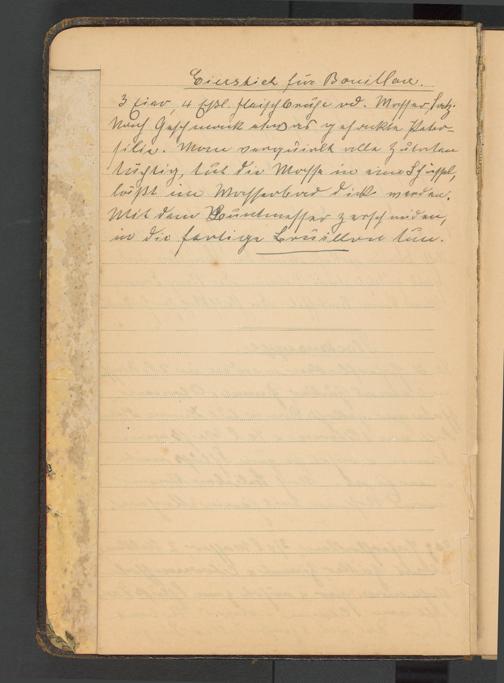 Eierstich für Bouillon.
3 Eier, 4 Eßl. Fleischbrühe od. Wasser, Salz.
Nach Geschmack etwas gehackte Peter-
silie. Man verquirlt alle Zutaten
tüchtig, tut die Masse in eine Schüssel,
läßt im Wasserbad dick werden.
Mit dem Buntmesser zerschneiden,
in die fertige Bouillon tun.